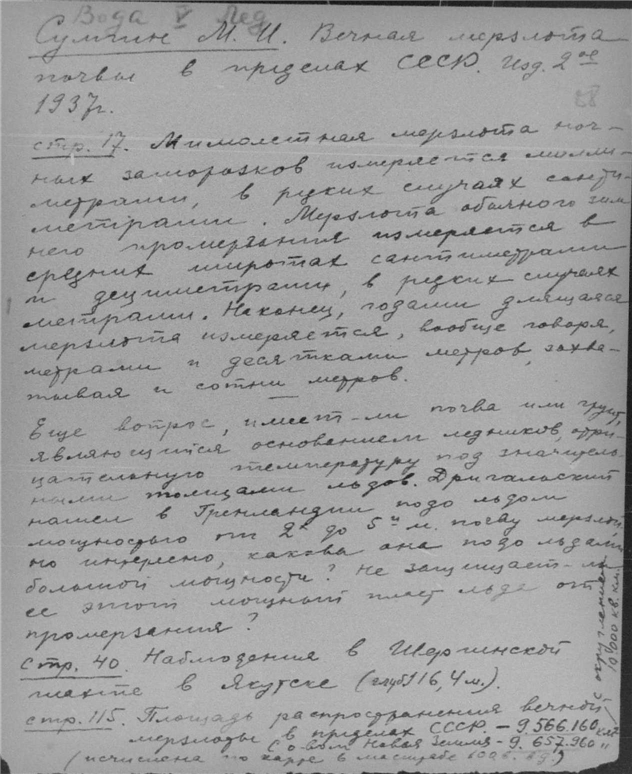 Вода V Лед
Сумгин М. И. Вечная мерзлота
почвы в пределах СССР. Изд. 2ое
1937г.
28
стр. 17. Мимолетная мерзлота ноч-
ных заморозков измеряется милли-
метрами, в редких случаях санти-
метрами. Мерзлота обычного зим
него промерзания измеряется в
средних широтах сантиметрами
и дециметрами, в редких случаях
метрами. Наконец, годами длящаяся
мерзлота измеряется, вообще говоря,
метрами и десятками метров, захва-
тывая и сотни метров.
Еще вопрос, имеет-ли почва или грунт,
являющийся основанием ледников, отри-
цательную температуру под значитель-
ными толщами льдов. Дригальский
нашел в Гренландии подо льдом
мощностью от 2х до 5и м. почву мерзлой,
но интересно, какова она подо льдами
большой мощности? Не защищает-ли
ее этот мощный пласт льда от
промерзания?
стр. 40. Наблюдения в Шергинской
шахте в Якутске (глуб. 116,4 м.).
стр. 115. Площадь распространения вечной
мерзлоты в пределах СССР. – 9.566.160 км²
с о-вом Новая Земля – 9.657.960 "
(исчислена по карте в масштабе
с округлением
10.000 кв. км.